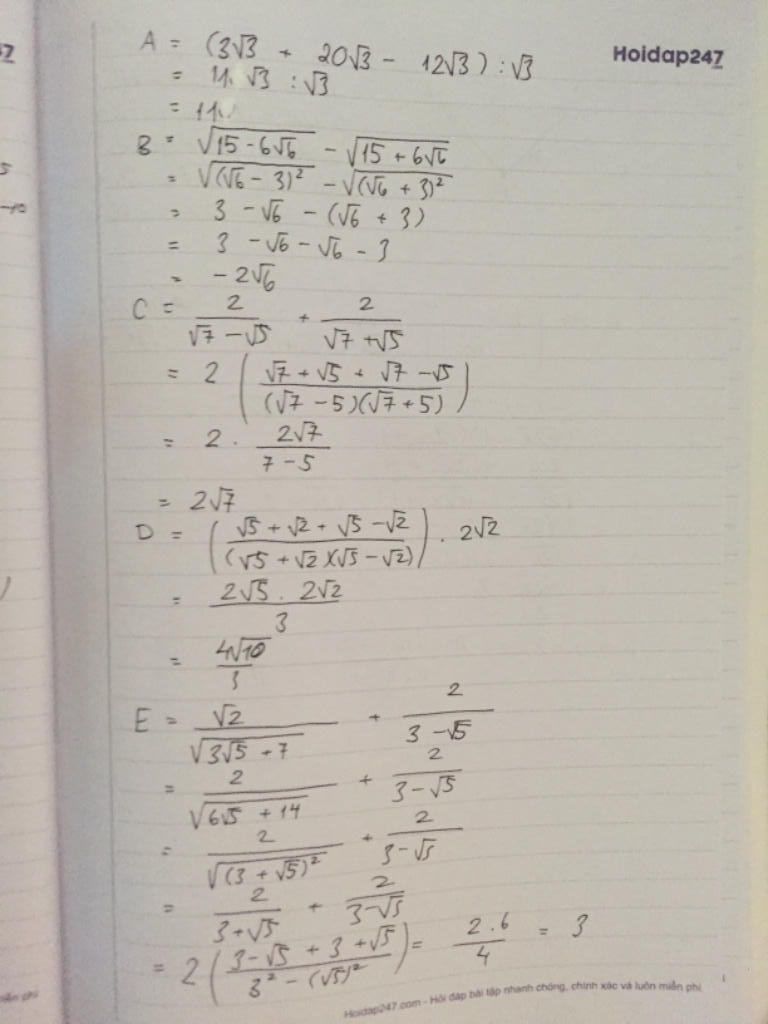 A = (3√3 + 20√3 - 12√3) : √3
Hoidap247
= 11. √3 : √3
= 11.
B = √(15 - 6√6) - √(15 + 6√6)
= √((√6 - 3)²) - √((√6 + 3)²)
= 3 - √6 - (√6 + 3)
= 3 - √6 - √6 - 3
= -2√6
C = 2/(√7 - √5) + 2/(√7 + √5)
= 2 ((√7 + √5 + √7 - √5)/((√7 - 5)(√7 + 5)))
= 2 . 2√7/(7 - 5)
= 2√7
D = ((√5 + √2 + √5 - √2)/((√5 + √2)(√5 - √2))) . 2√2
= (2√5 . 2√2)/3
= 4√10/3
E = √2/√(3√5 + 7) + 2/(3 - √5)
= 2/√(6√5 + 14) + 2/(3 - √5)
= 2/√((3 + √5)²) + 2/(3 - √5)
= 2/(3 + √5) + 2/(3 - √5)
= 2 ((3 - √5 + 3 + √5)/(3² - (√5)²)) = (2 . 6)/4 = 3
Hoidap247.com - Hỏi đáp bài tập nhanh chóng, chính xác và luôn miễn phí